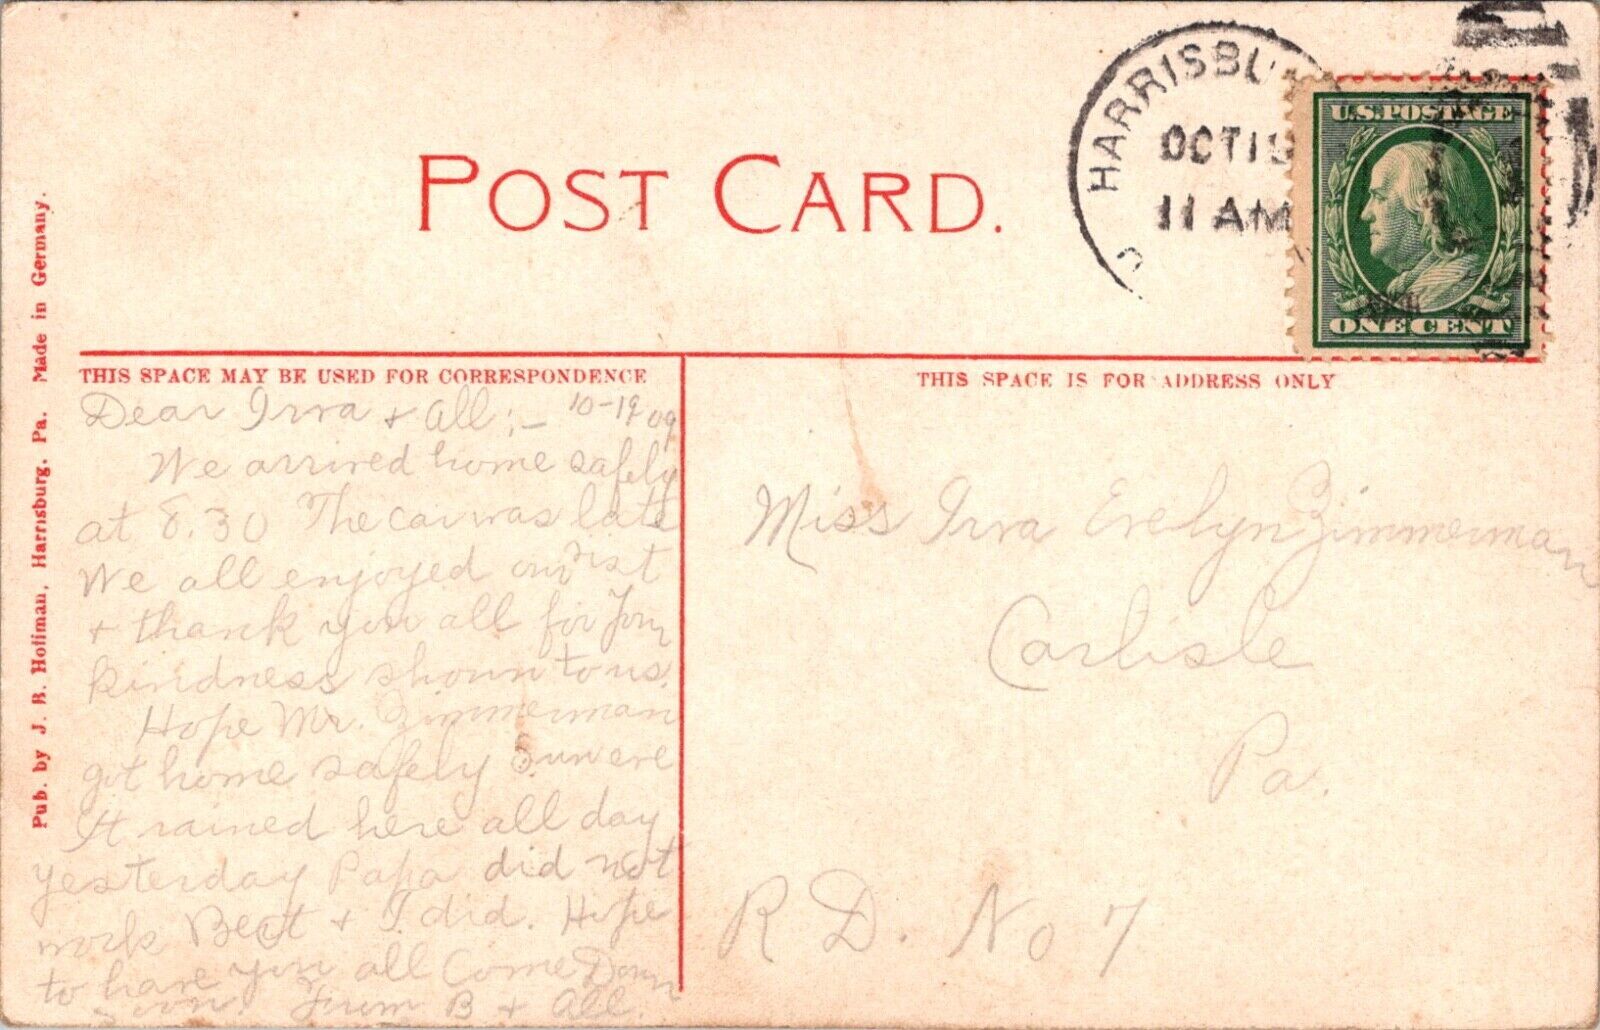 POST CARD.
HARRISBU
OCT 1
11 AM
U.S. POSTAGE
ONE CENT
Pub. by J. B. Hoffman, Harrisburg, Pa. Made in Germany.
THIS SPACE MAY BE USED FOR CORRESPONDENCE
THIS SPACE IS FOR ADDRESS ONLY
Dear Irva + All :- 10-19 09
We arrived home safely
at 8.30 The car was late
We all enjoyed our visit
+ thank you all for your
kindness shown to us.
Hope Mr. Zimmerman
got home safely Sun eve
It rained here all day
yesterday Papa did not
work Bert + I did. Hope
to have you all Come Down
Soon. From B + All.
Miss Irva Evelyn Zimmerman
Carlisle
Pa.
R D. No 7